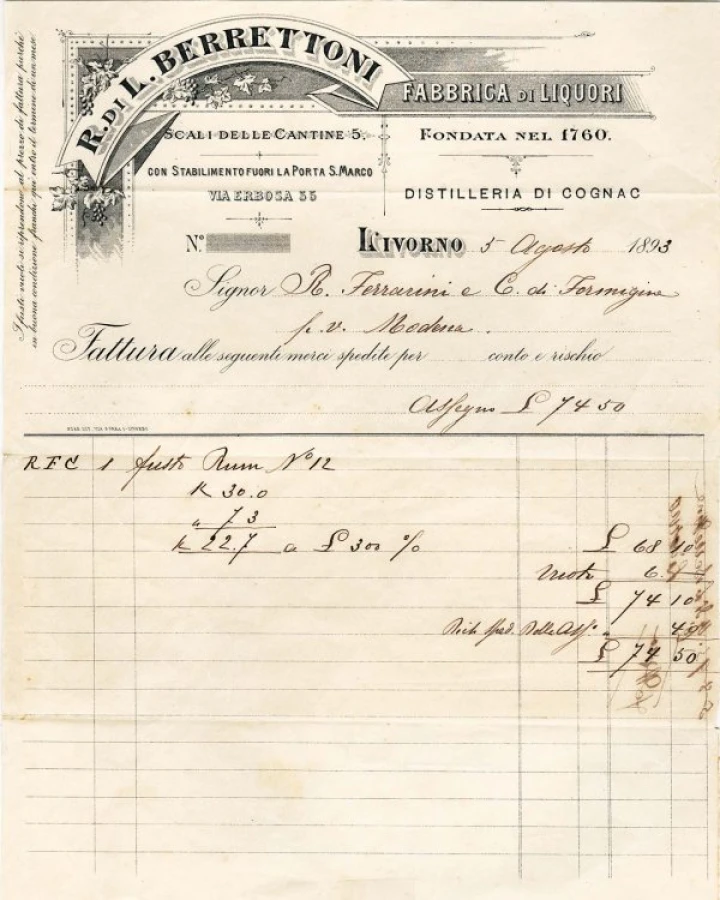 R. DI L. BERRETTONI
FABBRICA DI LIQUORI
SCALI DELLE CANTINE 5.
FONDATA NEL 1760.
CON STABILIMENTO FUORI LA PORTA S. MARCO
VIA ERBOSA 55
DISTILLERIA DI COGNAC
I fusti vuoti si riprendono al prezzo di fattura purchè
in buona condizione franchi qui entro il termine di un mese
N.º LIVORNO 5 Agosto 1893
Signor R. Ferrarini e C. di Formigine
p. v. Modena.
Fattura alle seguenti merci spedite per conto e rischio
Assegno £ 74 50
RFC 1 fusto Rum Nº 12
K 30.0
" 7 3
K 22.7 a £ 300 % £ 68 10
Vuoto 6. –
£ 74 10
Spad. Bolla Ass.º " 40
£ 74 50